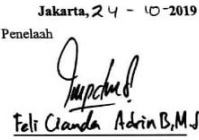 Jakarta, 24 - 10-2019
Penelaah
Feli Cianda Adrin B, M.S